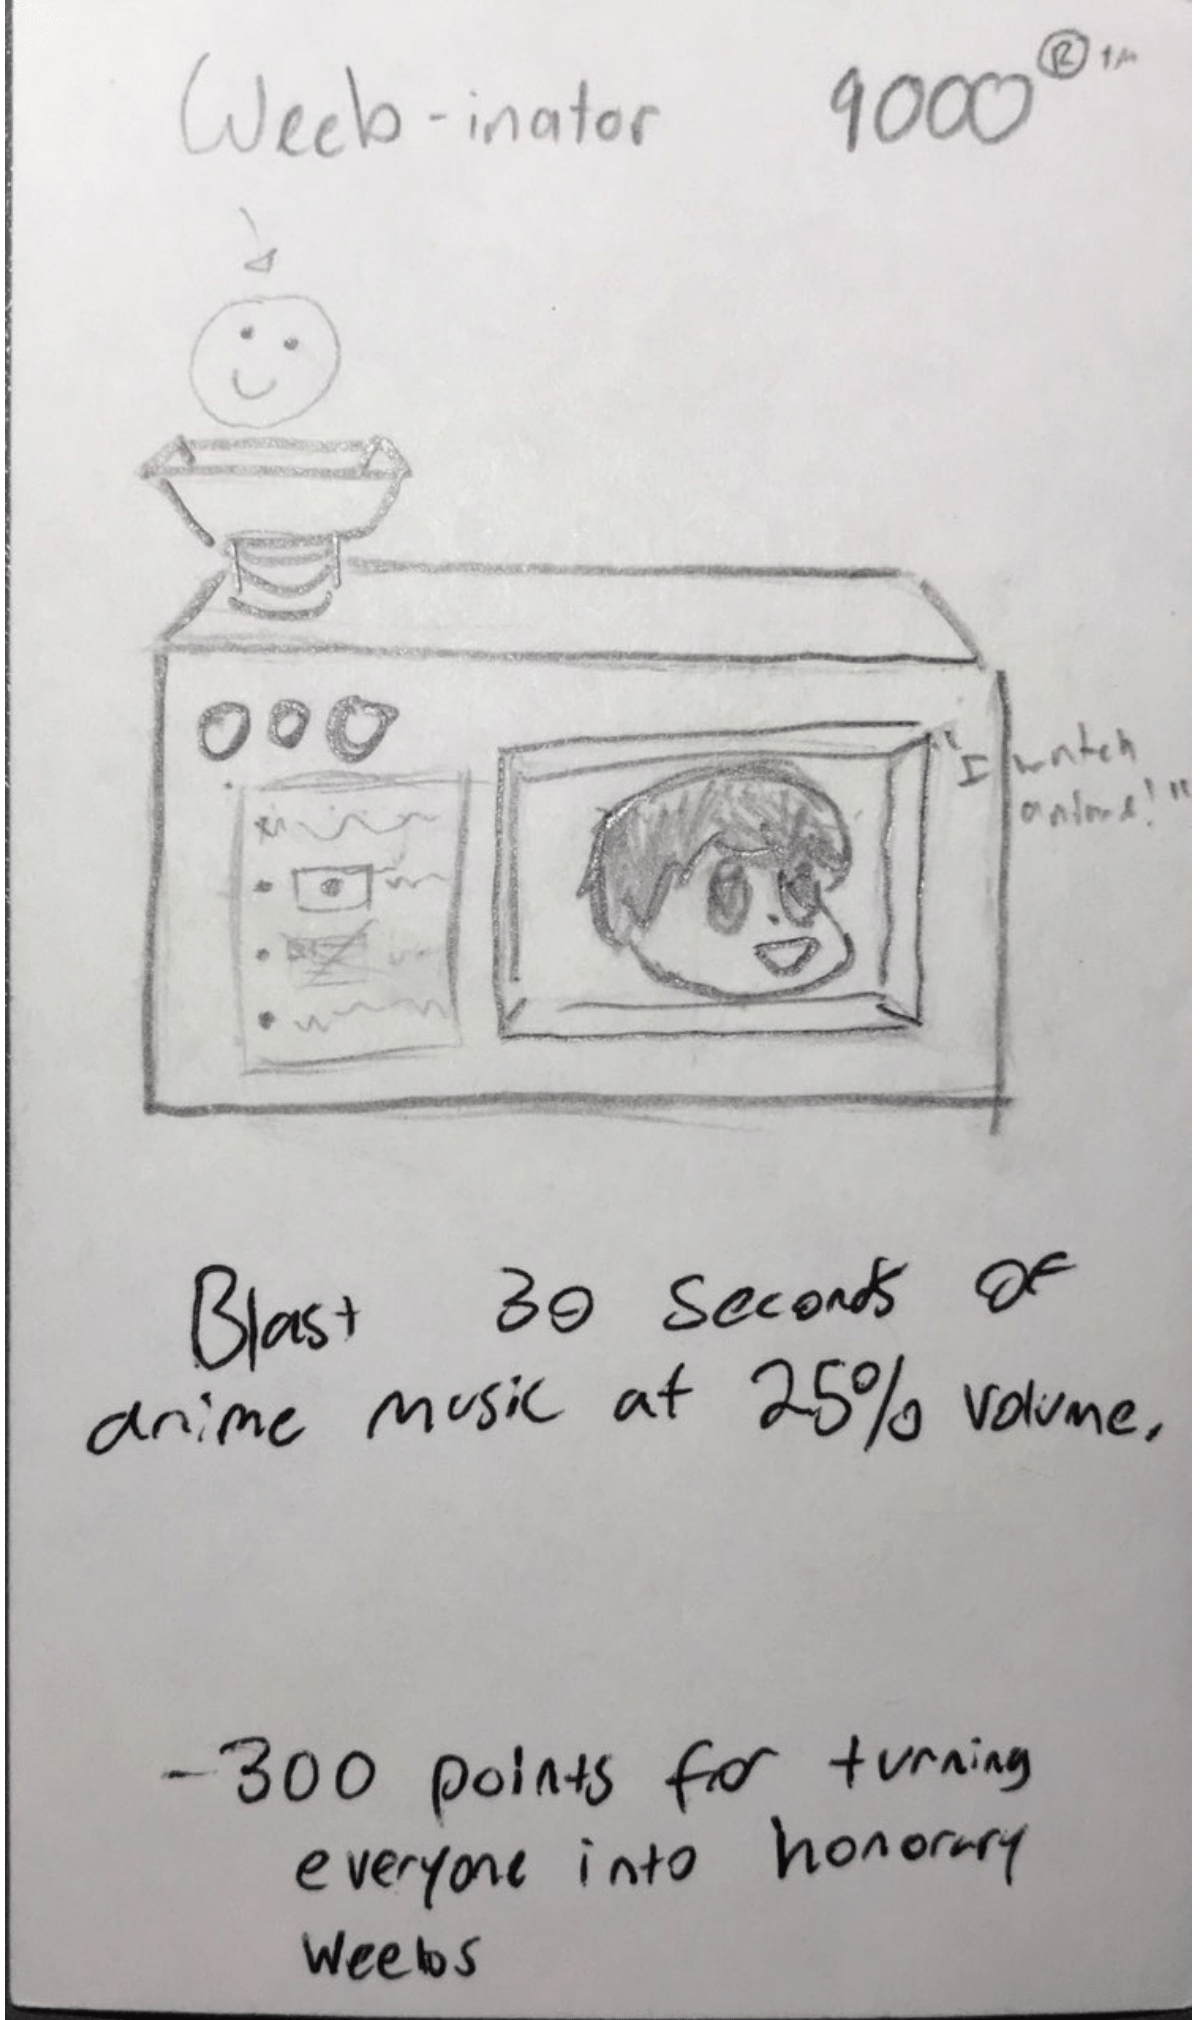 Weeb-inator 9000® TM
"I watch
anime!"
Blast 30 seconds of
anime music at 25% volume.
-300 points for turning
everyone into honorary
weebs